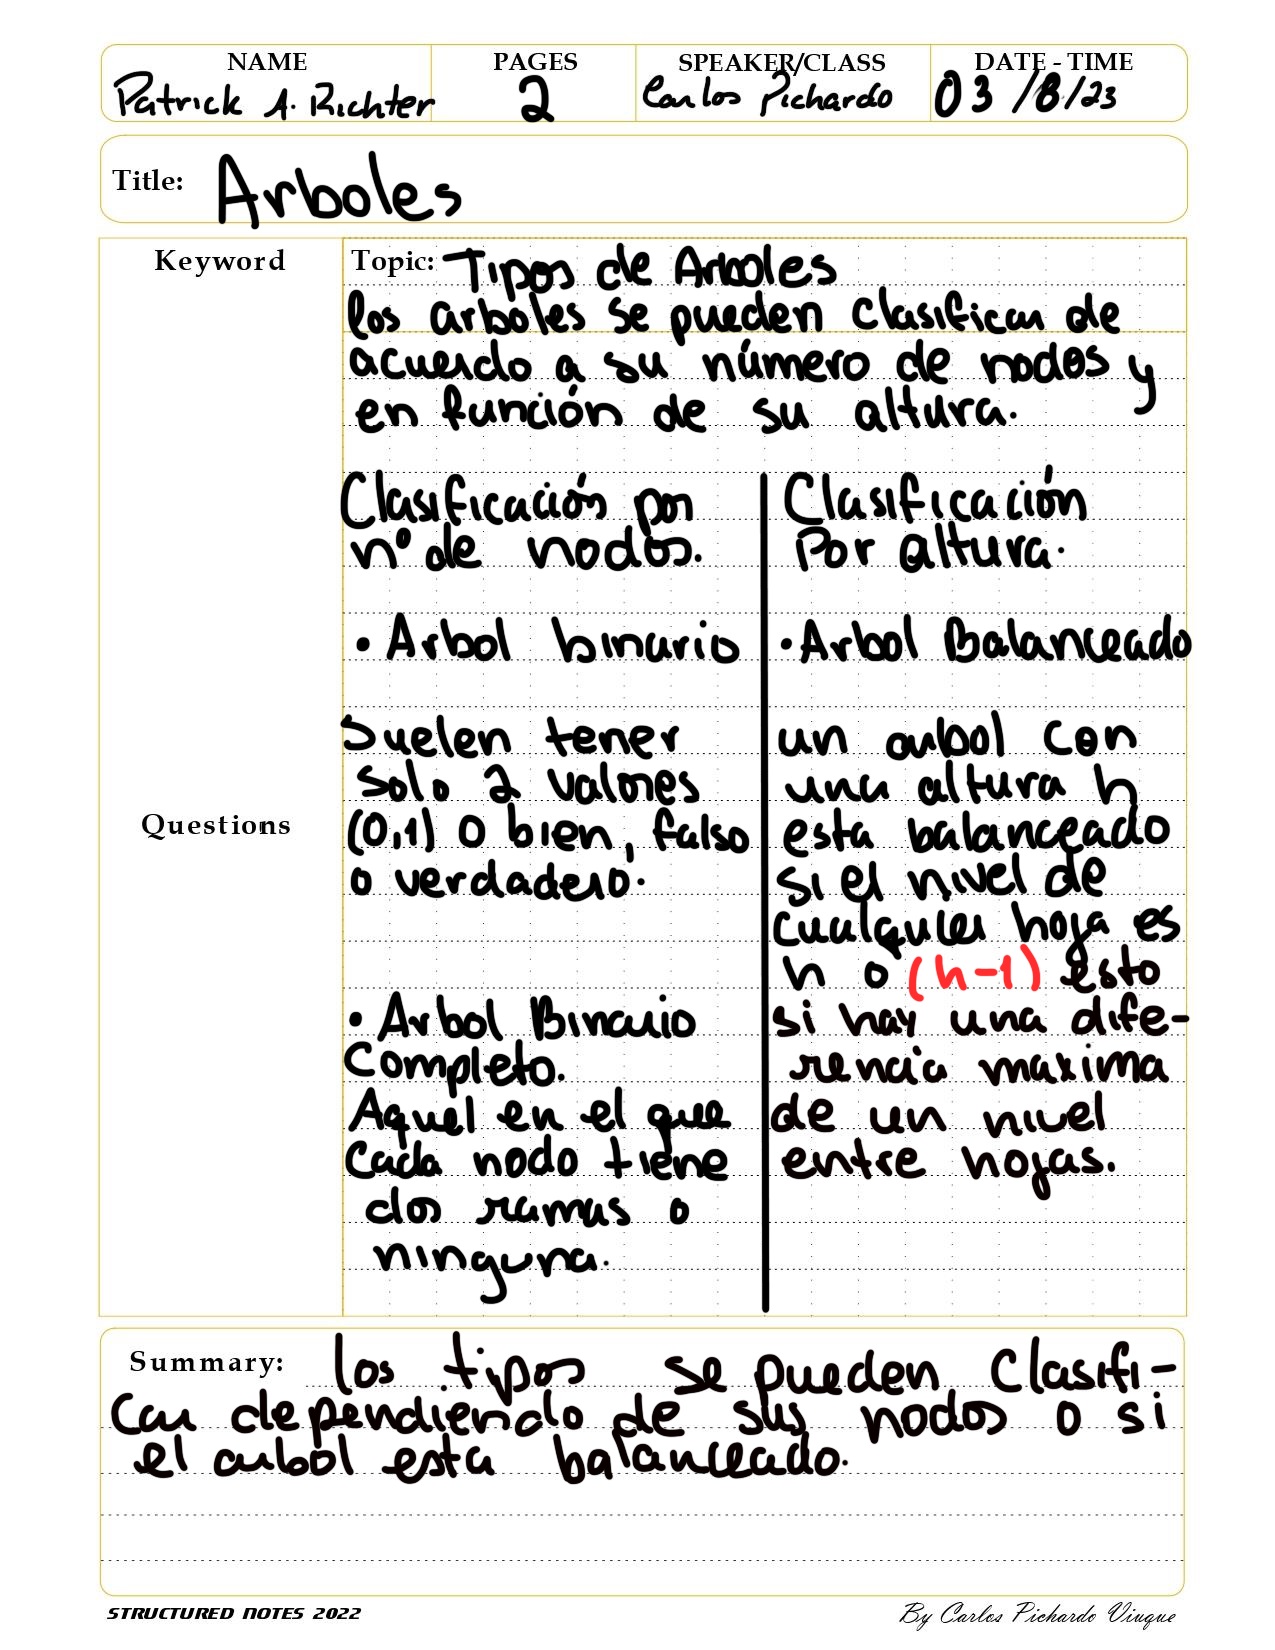 NAME PAGES SPEAKER/CLASS DATE - TIME
Patrick A. Richter 2 Carlos Pichardo 03/8/23
Title: Arboles
Keyword
Topic: Tipos de Arboles
los arboles se pueden clasificar de
acuerdo a su número de nodos y
en función de su altura.
Clasificación por
nº de nodos.
• Arbol binario
Suelen tener
solo 2 valores
(0,1) o bien, falso
o verdadero.
• Arbol Binario
Completo.
Aquel en el que
cada nodo tiene
dos ramas o
ninguna.
Clasificación
Por altura.
• Arbol Balanceado
un arbol con
una altura h
esta balanceado
si el nivel de
cualquier hoja es
h o (h-1) esto
si hay una dife-
rencia maxima
de un nivel
entre hojas.
Questions
Summary: los tipos se pueden Clasifi-
car dependiendo de sus nodos o si
el arbol esta balanceado.
STRUCTURED NOTES 2022
By Carlos Pichardo Viuque